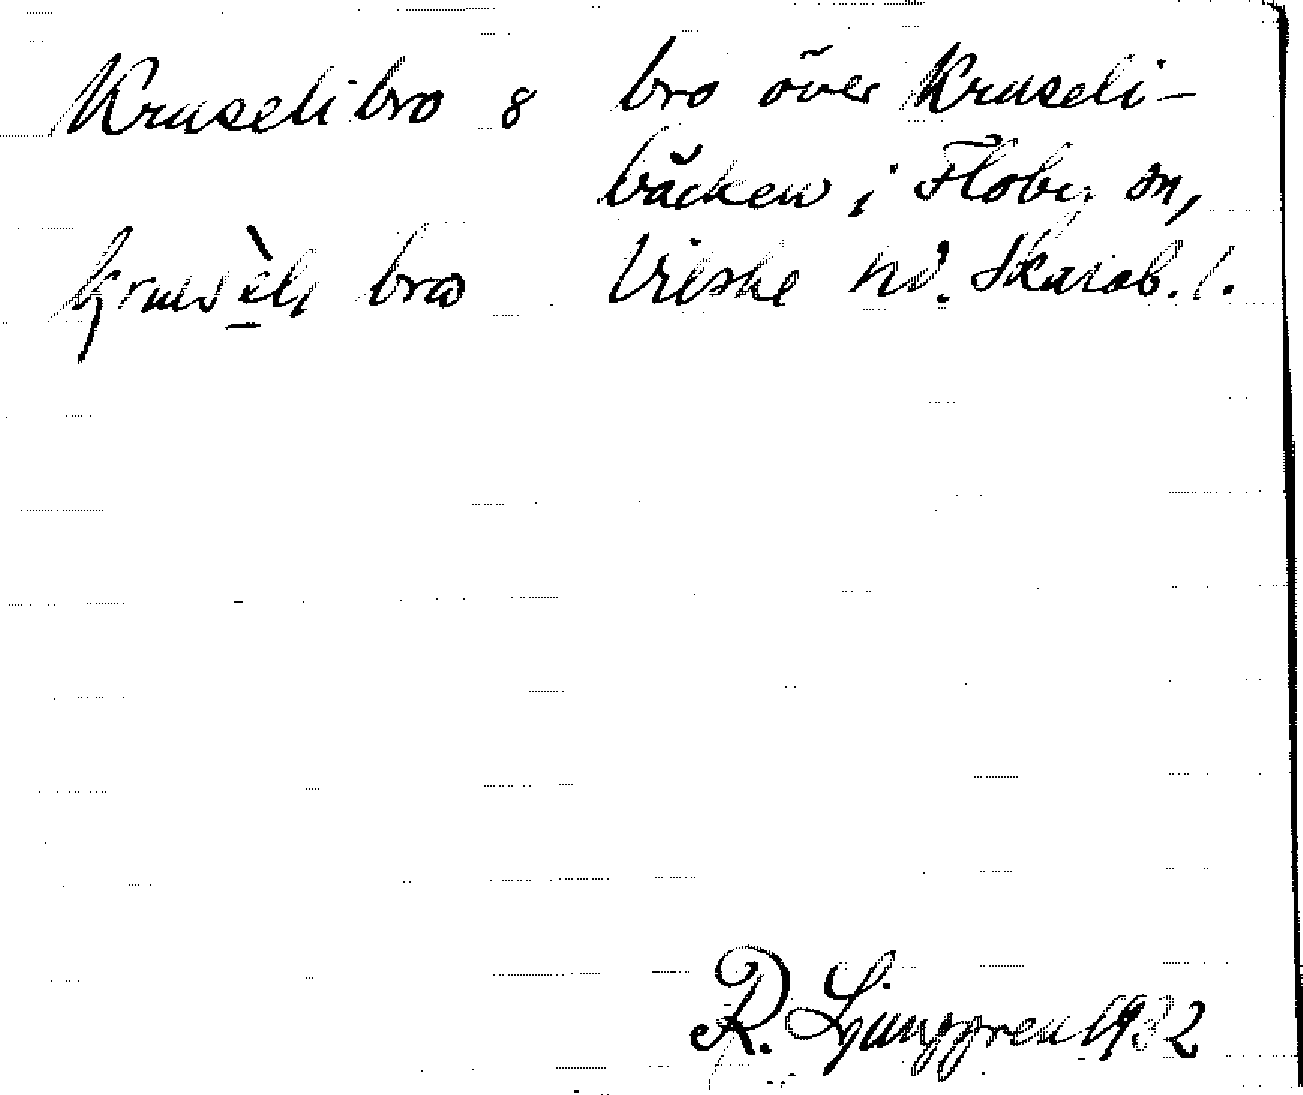 Kruseli bro 8 bro över Kruseli-
bäcken i Floby sn,
bro Vilske hd. Skarab. l.
R. Ljunggren 1932